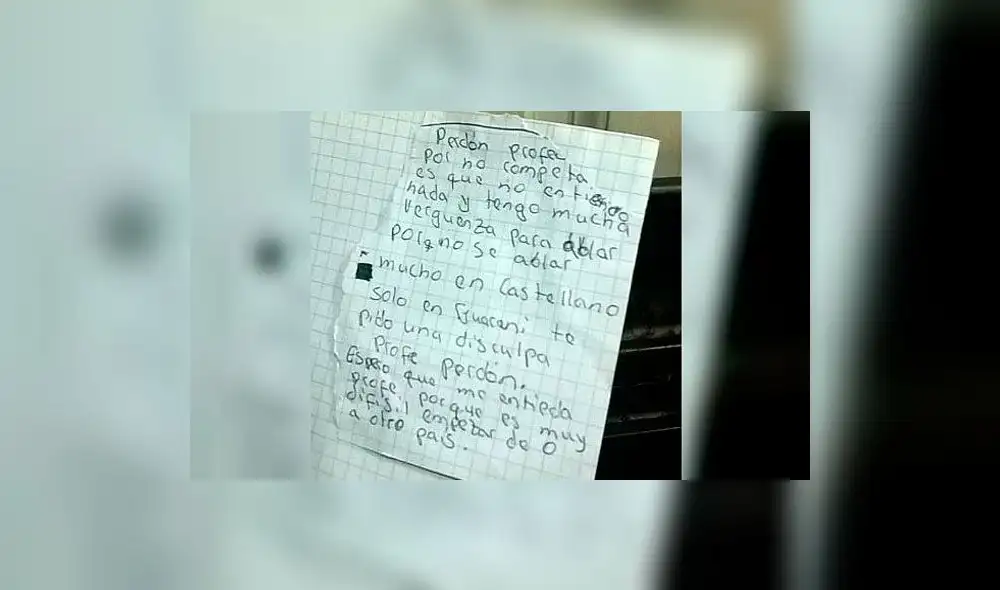 Perdón profe
por no completa
es que no entiendo
nada y tengo mucha
verguenza para ablar
porq no se ablar
mucho en Castellano
solo en Guarani te
pido una disculpa
profe perdón.
Espero que me entieda
profe porque es muy
difisil empezar de 0
a otro pais.